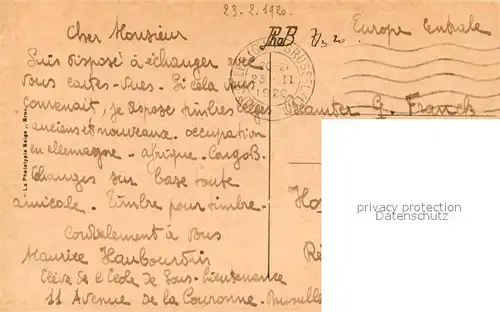 23-2-1920.
Cher Monsieur
Europe Centrale
Suis disposé à échanger avec
vous cartes-vues. Si cela vous
convenait, je dispose timbres belges
anciens et nouveaux. occupation
en allemagne - afrique - Congo B.
Echanges sur base toute
amicale. Timbre pour timbre -
Cordialement à vous
Maurice Haubourdin
Elève de l'Ecole de Sous-Lieutenance
11 Avenue de la Couronne - Bruxelles
G. Franck
23 II
1920
La Phototypie Belge
privacy protection
Datenschutz